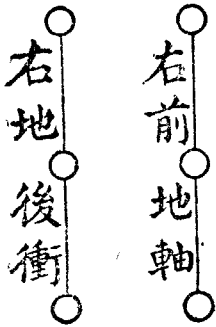 右前地軸
右地後衝